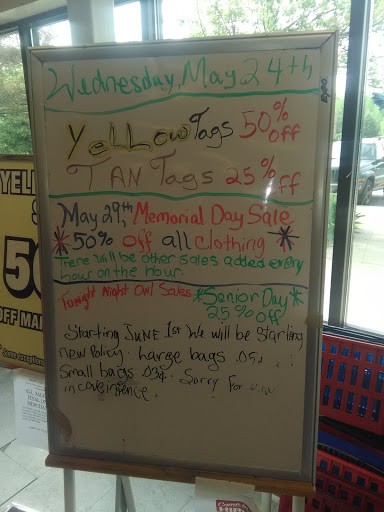 Wednesday, May 24th
Expo
YelLow Tags 50% off
TAN Tags 25% ff
May 29th, Memorial Day Sale
*50% off all clothing*
There will be other sales added every
hour on the hour
Tonight Night Owl Sales *Senior Day*
25% off
Starting JUNE 1st We will be Starting
new Policy. Large bags .05¢
Small bags .03¢. Sorry For
inconveinence.
YEL
5
OFF MA